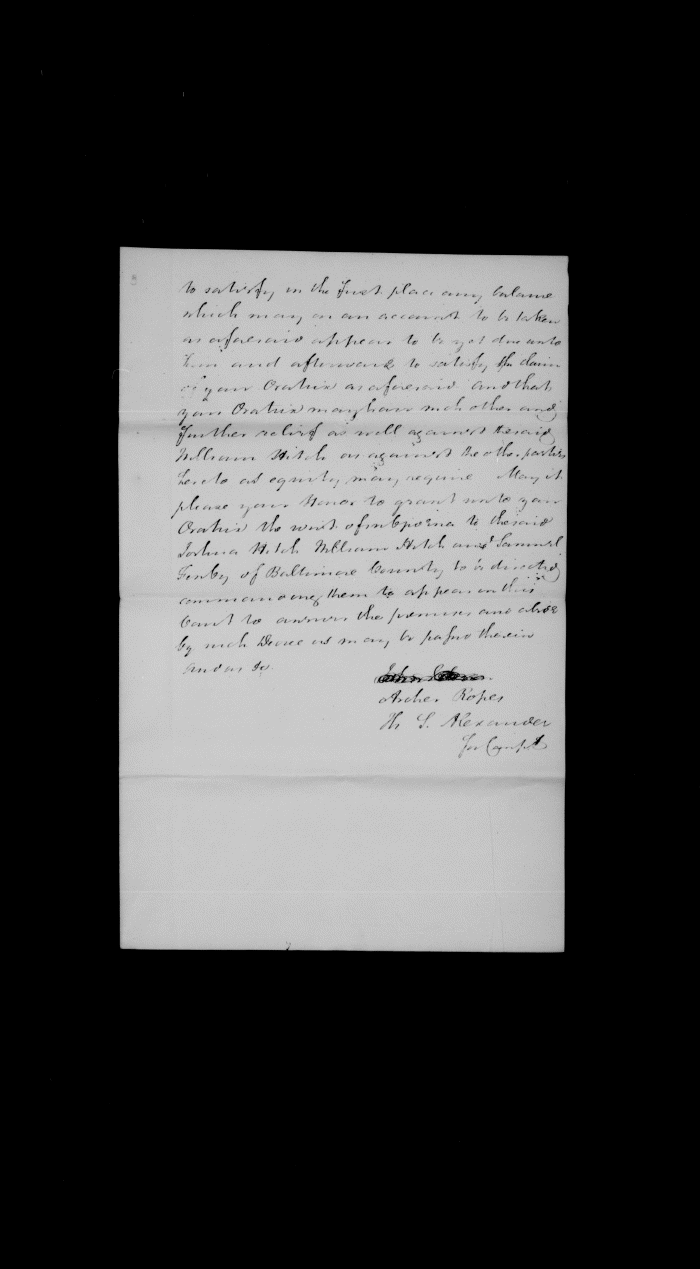 to satisfy in the first place any balance
which may on an account to be taken
as aforesaid appear to be yet due unto
him and afterwards to satisfy the claim
of your Oratrix as aforesaid and that
your Oratrix may have such other and
further relief as well against the said
William Hitch as against the other parties
hereto as equity may require May it
please your Honor to grant unto your
Oratrix the writ of subpoena to the said
Joshua Hitch William Hitch and Samuel
Fenby of Baltimore County to be directed
commanding them to appear in this
Court to answer the premises and abide
by such Decree as may be passed therein
and as &c.
Archer Ropes
H. S. Alexander
for Compt